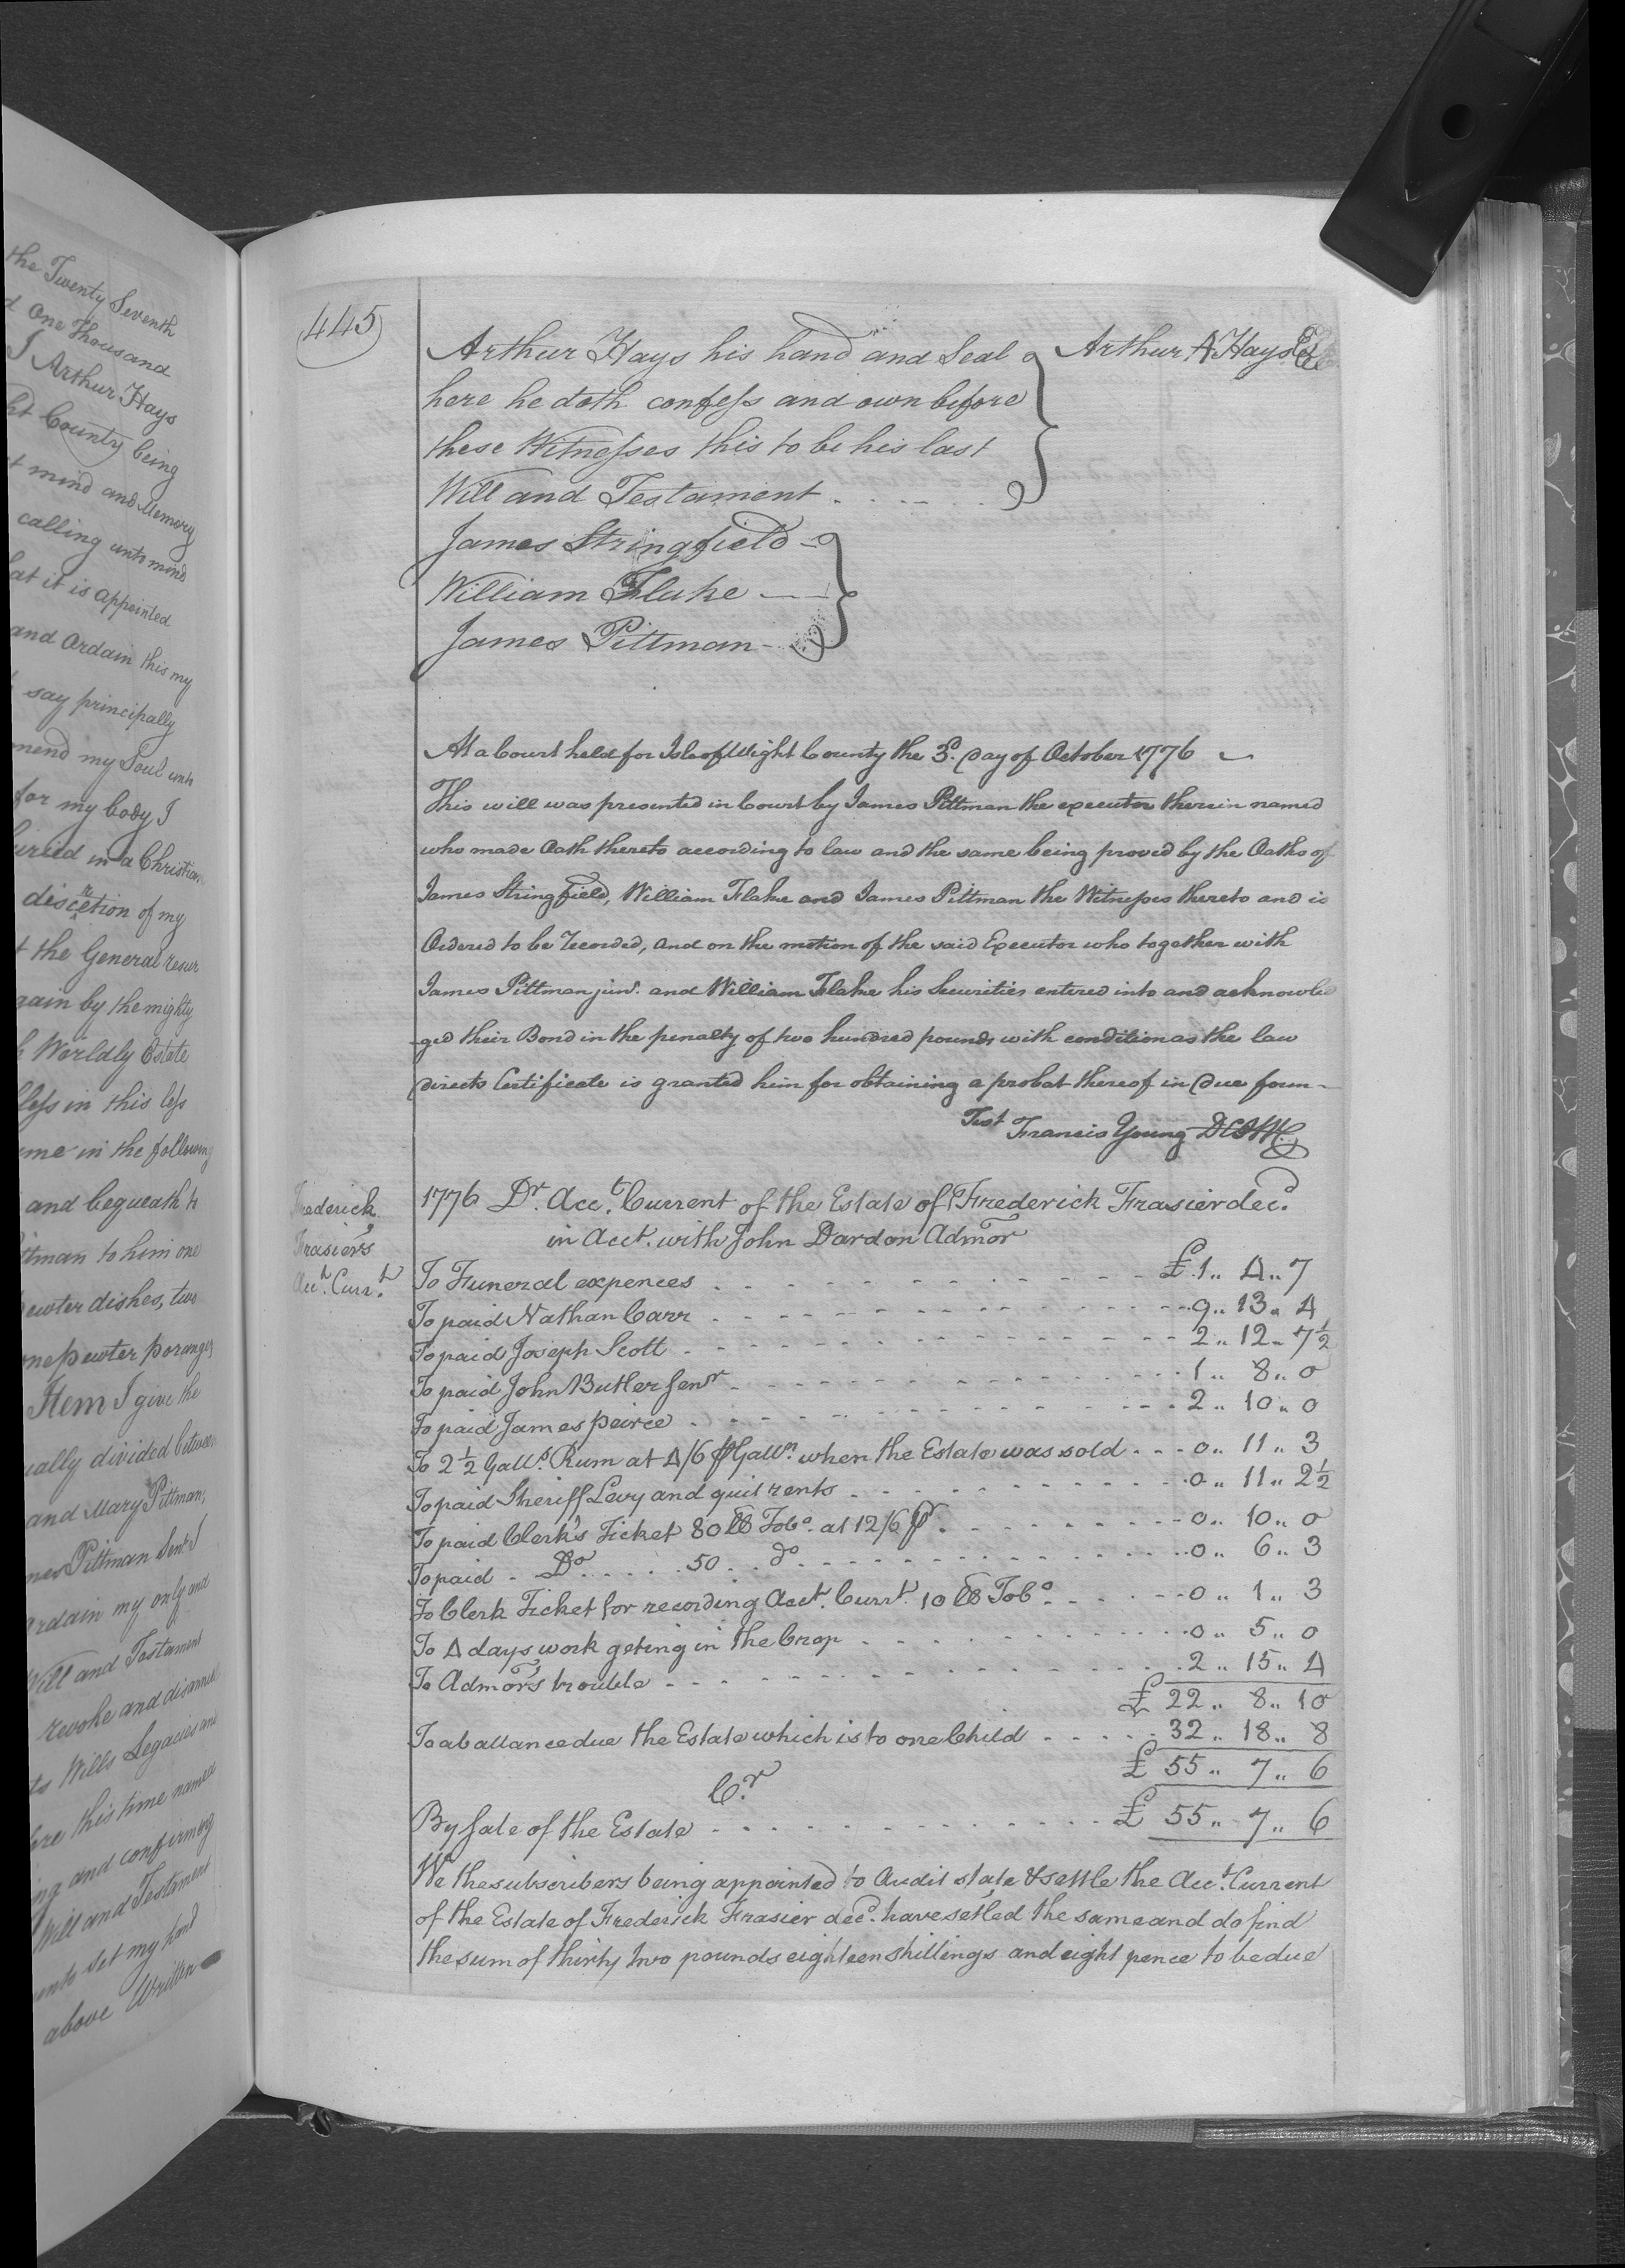 the Twenty Seventh
d One Thousand
I Arthur Hays
ht County being
t mind and Memory
calling unto mind
hat it is appointed
and Ordain this my
say principally
mend my Soul unto
for my body I
uried in a Christian
discretion of my
t the General resur
gain by the mighty
h Worldly Estate
bless in this life
me in the following
and bequeath to
ittman to him one
pewter dishes, two
one pewter poranger
Item I give the
ually divided between
and Mary Pittman,
mes Pittman Senr I
ordain my only and
Will and Testament
revoke and disannul
ts Wills Legacies and
ore this time named
ng and confirming
Will and Testament
unto set my hand
above Written
445
Arthur Hays his hand and Seal Arthur A Hays
here he doth confess and own before
these Witnesses this to be his last
Will and Testament
James Stringfield
William Flake
James Pittman
At a Court held for Isle of Wight County the 3d. Day of October 1776
This will was presented in Court by James Pittman the executor therein named
who made Oath thereto according to law and the same being proved by the Oaths of
James Stringfield, William Flake and James Pittman the Witnesses thereto and is
Ordered to be Recorded, and on the motion of the said Executor who together with
James Pittman junr. and William Flake his Securities entered into and acknowled
-ged their Bond in the penalty of two hundred pounds with condition as the law
directs Certificate is granted him for obtaining a probat thereof in due form-
Test Francis Young DCIW
Frederick
Frasier's
Acct. Curr.t
1776 Dr. Acct. Current of the Estate of Frederick Frasier decd.
in Acct. with John Dardon Admor
To Funeral expences £ 1 ,, 4 ,, 7
To paid Nathan Carr 9 ,, 13 ,, 4
To paid Joseph Scott 2 ,, 12 ,, 7½
To paid John Butler Senr 1 ,, 8 ,, 0
To paid James peirce 2 ,, 10 ,, 0
To 2½ Galls. Rum at 4/6 ⅌ Galln. when the Estate was sold 0 ,, 11 ,, 3
To paid Sheriff Levy and quit rents 0 ,, 11 ,, 2½
To paid Clerk's Ticket 80 lb Tobo. at 12/6 ⅌r 0 ,, 10 ,, 0
To paid Do 50 do 0 ,, 6 ,, 3
To Clerk Ticket for recording Acct. Currt. 10 lb Tobo. 0 ,, 1 ,, 3
To 4 days work geting in the Crop 0 ,, 5 ,, 0
To Admor's trouble 2 ,, 15 ,, 4
£ 22 ,, 8 ,, 10
To a ballance due the Estate which is to one Child 32 ,, 18 ,, 8
£ 55 ,, 7 ,, 6
Cr.
By Sale of the Estate £ 55 ,, 7 ,, 6
We the subscribers being appointed to Audit state & settle the Acct. Current
of the Estate of Frederick Frasier decd. have setled the same and do find
the sum of thirty two pounds eighteen shillings and eight pence to be due